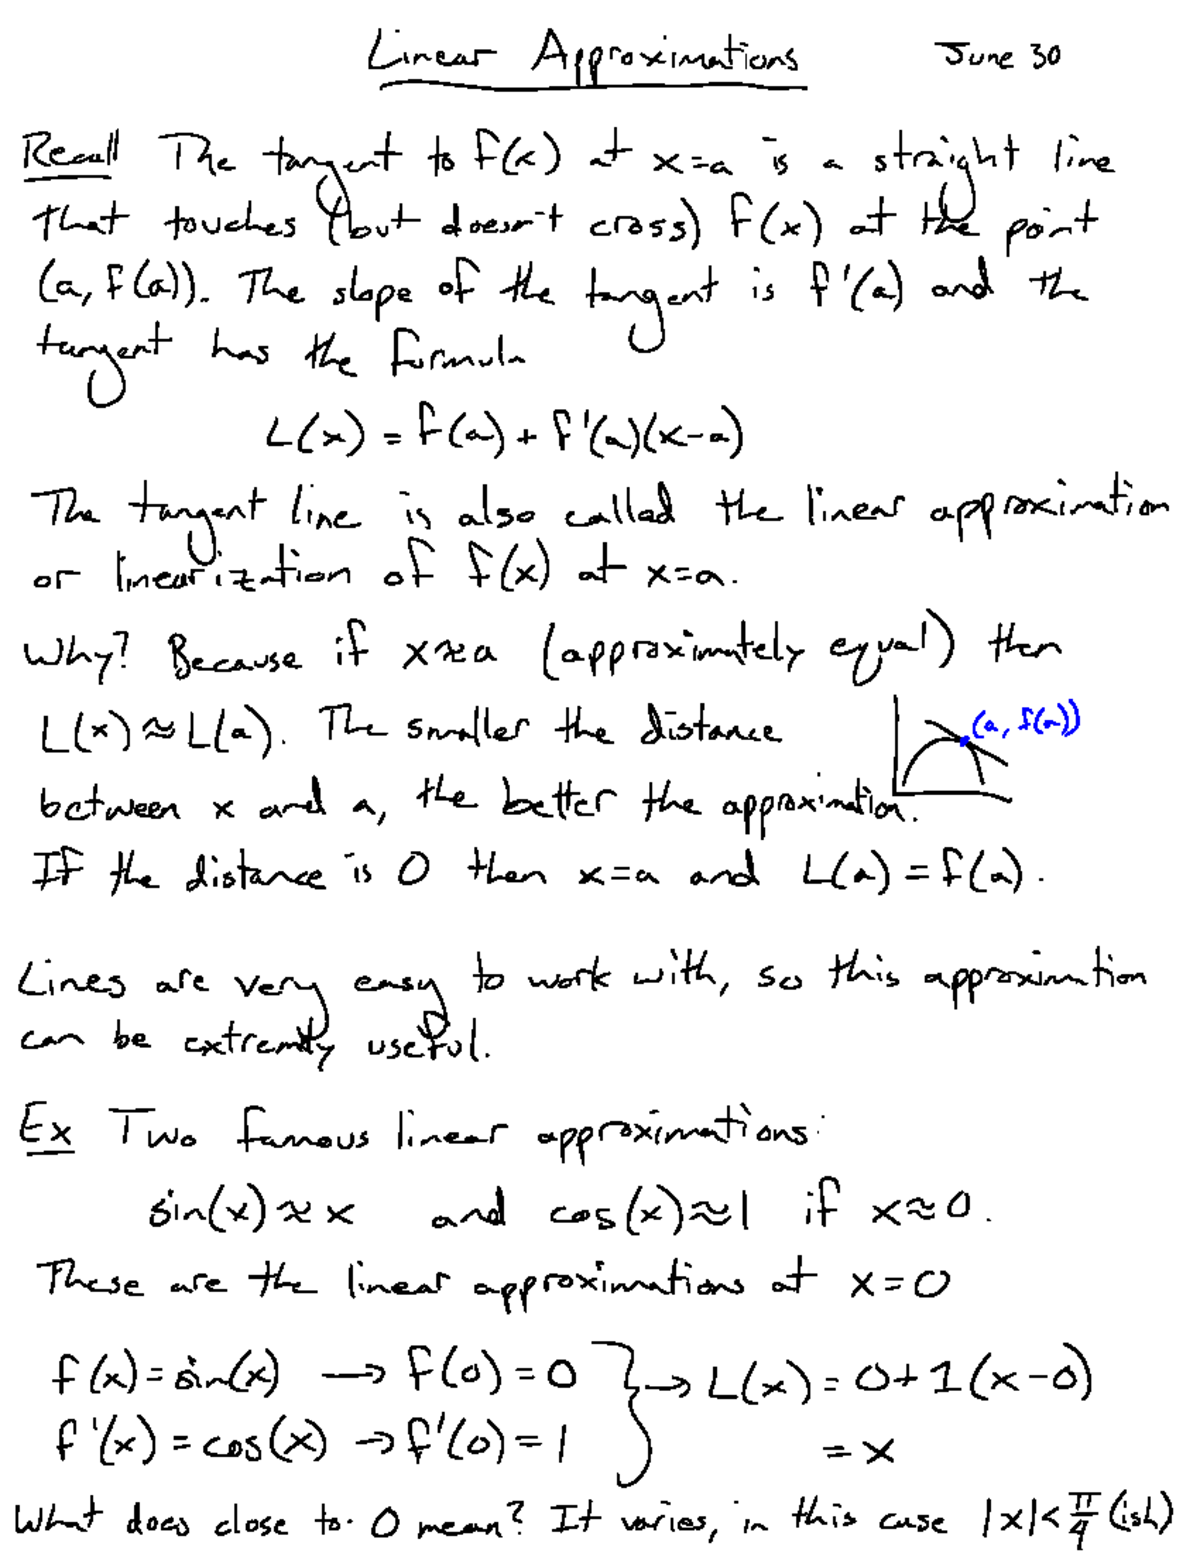 Linear Approximations June 30
Recall The tangent to f(x) at x=a is a straight line
that touches (but doesn't cross) f(x) at the point
(a, f(a)). The slope of the tangent is f'(a) and the
tangent has the formula
L(x) = f(a) + f'(a)(x-a)
The tangent line is also called the linear approximation
or linearization of f(x) at x=a.
Why? Because if x≈a (approximately equal) then
L(x)≈L(a). The smaller the distance
(a, f(a))
between x and a, the better the approximation.
If the distance is 0 then x=a and L(a) = f(a).
Lines are very easy to work with, so this approximation
can be extremly useful.
Ex Two famous linear approximations:
sin(x)≈x and cos(x)≈1 if x≈0.
These are the linear approximations at x=0
f(x)=sin(x) → f(0)=0 } → L(x) = 0+1(x-0)
f'(x)=cos(x) → f'(0)=1 = x
What does close to 0 mean? It varies, in this case |x|<π/4 (ish)